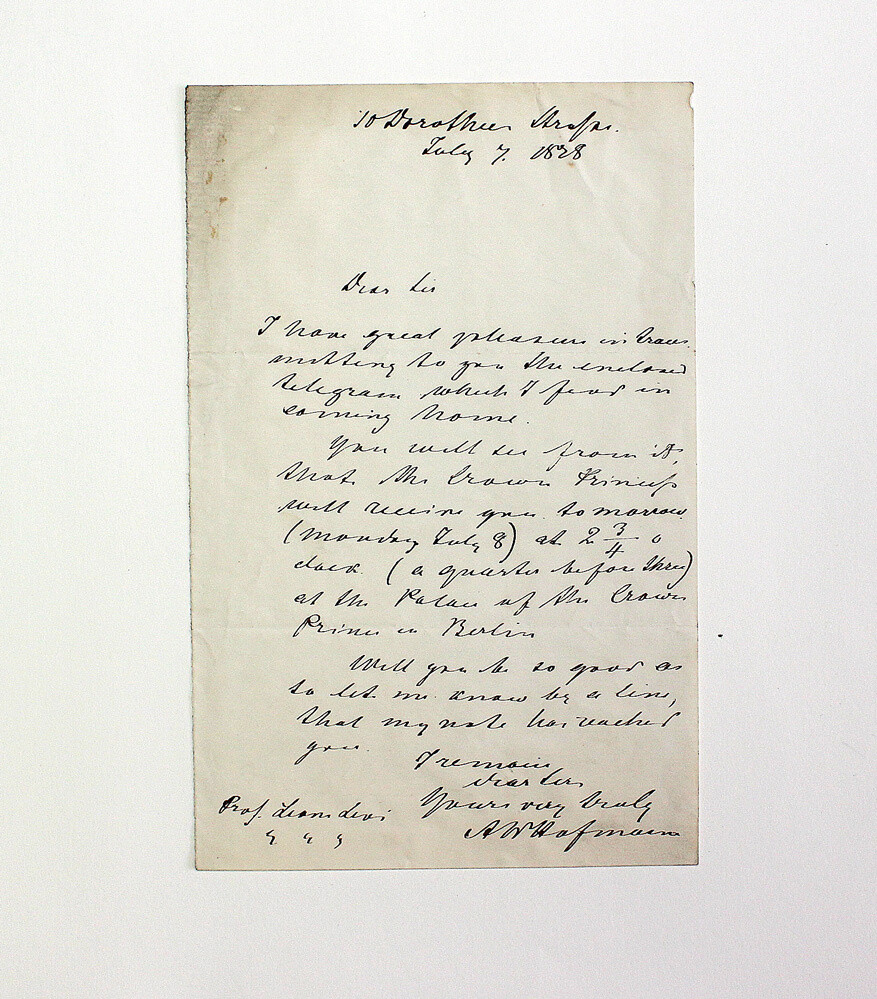 10 Dorotheen Strasse.
July 7. 1878
Dear Sir
I have great pleasure in trans
mitting to you the enclosed
telegram which I find in
coming home.
You will see from it,
that the Crown Princess
will receive you tomorrow
(Monday July 8) at 2 3/4 o
clock (a quarter before three)
at the Palace of the Crown
Prince in Berlin
Will you be so good as
to let me know by a line,
that my note has reached
you.
I remain
dear Sir
Yours very truly
AWHofmann
Prof. Leone Levi
" " "